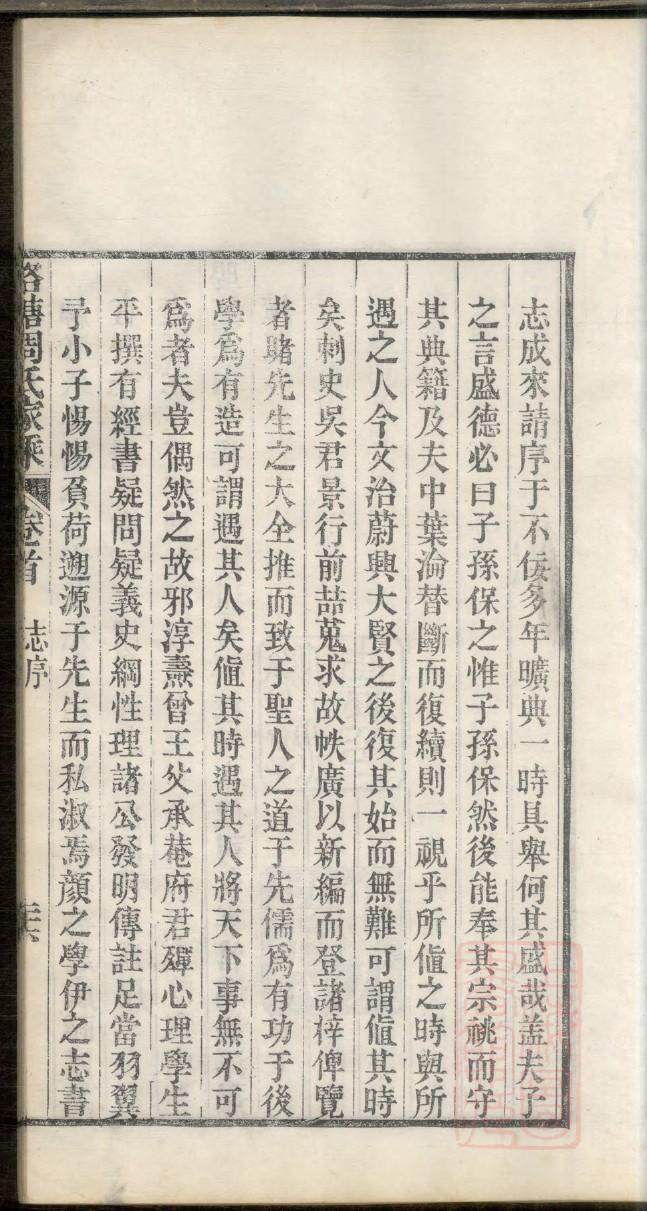 志成來請序于不佞多年曠典一時具舉何其盛哉盖夫子
之言盛德必曰子孫保之惟子孫保然後能奉其宗祧而守
其典籍及夫中葉淪替斷而復續則一視乎所値之時與所
遇之人今文治蔚興大賢之後復其始而無難可謂値其時
矣刺史吳君景行前喆蒐求故帙廣以新編而登諸梓俾覽
者睹先生之大全推而致于聖人之道于先儒爲有功于後
學爲有造可謂遇其人矣値其時遇其人將天下事無不可
爲者夫豈偶然之故邪淳燾曾王父承菴府君殫心理學生
平撰有經書疑問疑義史綱性理諸公發明傳註足當羽翼
予小子惕惕負荷遡源于先生而私淑焉顔之學伊之志書
周氏家乘 卷首 志序